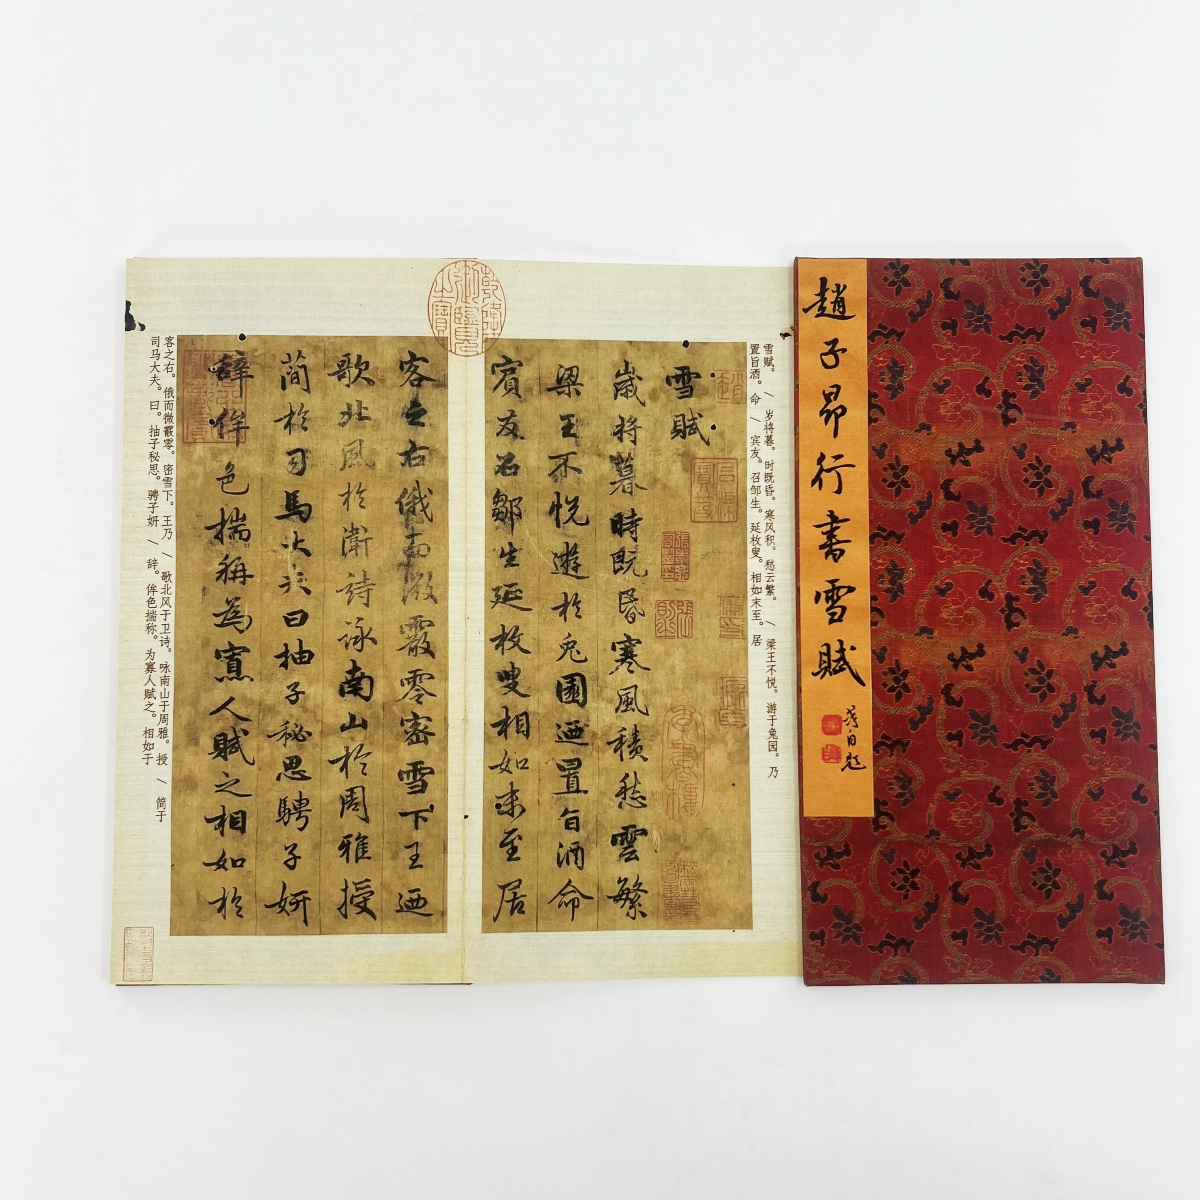 趙子昂行書雪賦
雪赋。/ 岁将暮。时既昏。寒风积。愁云繁。/ 梁王不悦。游于兔园。乃
置旨酒。命 / 宾友。召邹生。延枚叟。相如末至。居
雪賦
歲將暮時既昏寒風積愁雲繁
梁王不悦遊於兔園迺置旨酒命
賓友召鄒生延枚叟相如末至居
乾隆御覽之寶
客之右俄而微霰零密雪下王迺
歌北風於衛詩詠南山於周雅授
簡於司馬大夫曰抽子秘思騁子妍
辭侔色揣稱為寡人賦之相如於
客之右。俄而微霰零。密雪下。王乃 / 歌北风于卫诗。咏南山于周雅。授 / 简于
司马大夫。曰。抽子秘思。骋子妍 / 辞。侔色揣称。为寡人赋之。相如于